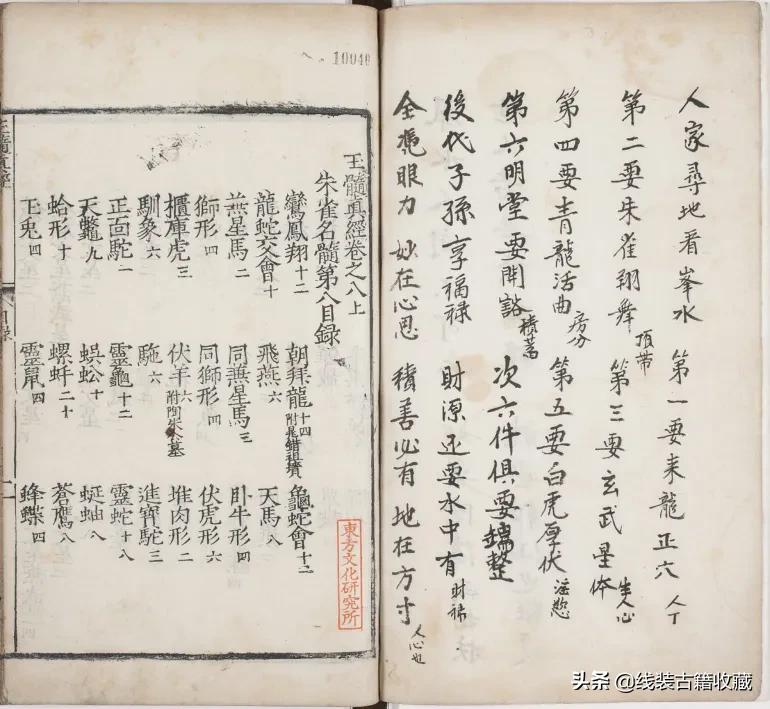 人家尋地看峯水
第一要来龍正穴 人丁
第二要朱雀翔舞 項带
第三要玄武星体 生人心
第四要青龍活曲 房分
第五要白虎厚伏
第六明堂要開豁 積蓄
次六件俱要鍴整
後代子孫享福禄
財源还要水中有 財禄
全凴眼力妙在心思
積善必有地在方寸 人心也
10040
玉髓真經卷之八上
朱雀名髓第八目録
鸞鳳翔十二 朝拜龍十四附晁錯祖墳 龜蛇會十二
龍蛇交會十 飛燕六 天馬八
燕星馬二 同燕星馬三 卧牛形四
獅形四 同獅形四 伏虎形六
櫃庫虎三 伏羊六附陶朱公墓 堆肉形二
馴象六 駞六 進寶駝三
正面駝一 靈龜十二 靈蛇十八
天鼈九 蜈蚣十 蜒蚰八
蛤形十 螺蚌二十 蒼鷹八
玉兎四 靈鼠四 蜂蝶四
東方文化研究所
玉髓真經
目録
二
头条 @线装古籍收藏